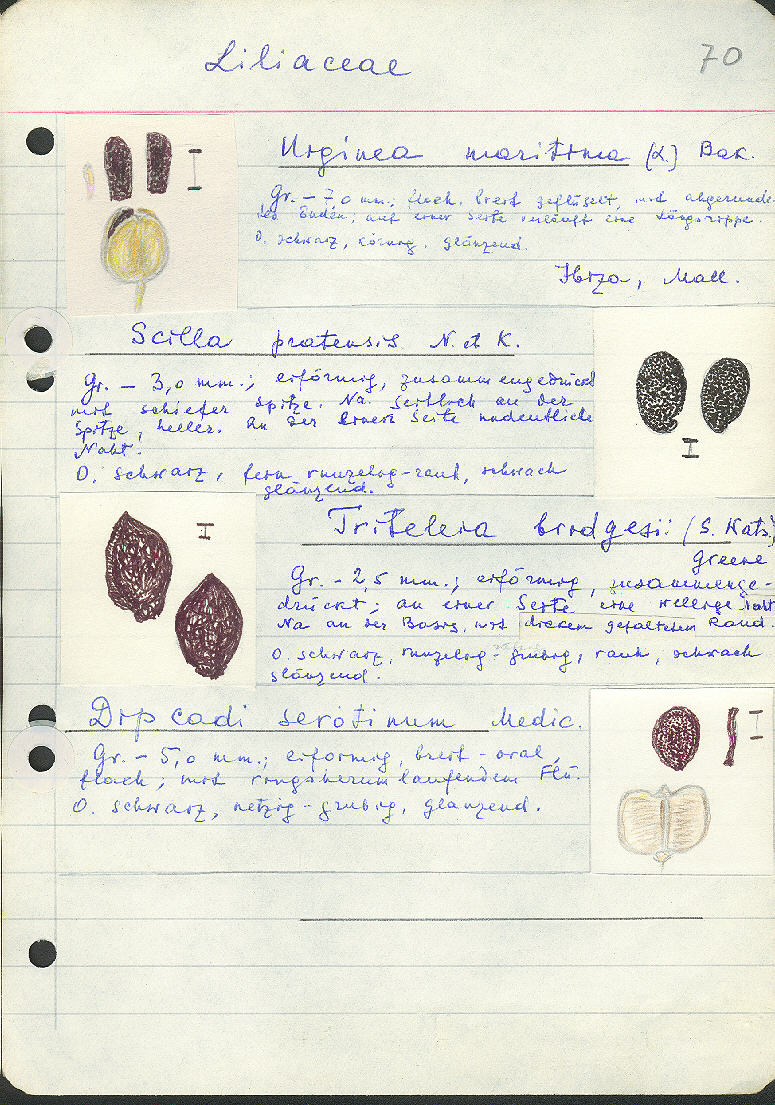 Liliaceae
70
Urginea maritima (L.) Bak.
Gr. – 7,0 mm.; flach, breit geflüselt, mit abgerunde-
ten Enden; auf einer Seite verläuft eine Längsrippe.
O. schwarz, körnig, glänzend.
Ibiza, Mall.
Scilla pratensis N. et K.
Gr. – 3,0 mm.; eiförmig, zusammengedrückt
mit schiefer Spitze. Na. seitlich an der
Spitze, heller. An der Seite undeutliche
Naht.
O. schwarz, fein runzelig-rauh, schwach
glänzend.
Triteleia bridgesii (S. Wats.)
Greene
Gr. – 2,5 mm.; eiförmig, zusammenge-
drückt; an einer Seite eine wellige Naht
Na an der Basis, mit dickem gefaltetem Rand.
O. schwarz, runzelig-grubig, rauh, schwach
glänzend.
Dipcadi serotinum Medic.
Gr. – 5,0 mm.; eiformig, breit-oval,
flach; mit ringsherum laufendem Flü.
O. schwarz, netzig-grubig, glänzend.